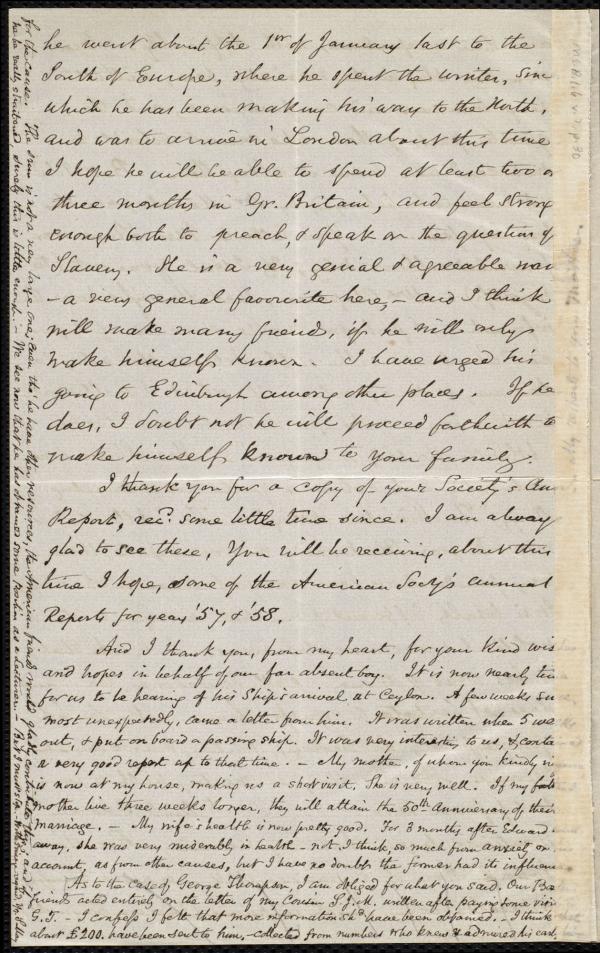 he went about the 1st of January last to the
South of Europe, where he spent the winter, sin
which he has been making his way to the North,
and was to arrive in London about this time
I hope he will be able to spend at least two o
three months in Gr. Britain, and feel strong
enough both to preach, & speak on the question of
Slavery. He is a very genial & agreeable man
- a very general favourite here, - and I think
will make many friend, if he will only
make himself known. I have urged his
going to Edinburgh among other places. If he
does, I doubt not he will proceed forthwith to
make himself known to your family.
I thank you for a copy of your Society's An
Report, recd. some little time since. I am alway
glad to see these, You will be receiving, about this
time I hope, some of the American Socy's annual
Reports for years '57, & '58.
And I thank you, from my heart, for your kind wis
and hopes in behalf of our far absent boy. It is now nearly tim
for us to be hearing of his Ship's arrival at Ceylon. A few weeks sin
most unexpectedly, came a letter from him. It was written when 5 we
out, & put on board a passing ship. It was very interesting to us, & conta
a very good report up to that time. - My mother, of whom you kindly in
is now at my house, making us a short visit. She is very well. If my fath
mother live three weeks longer, they will attain the 60th Anniversary of their
marriage. - My wife's health is now pretty good. For 3 months after Edward
away, she was very miserably in health - not, I think, so much from anxiety on
account, as from other causes, but I have no doubt the former had its influenc
As to the case of George Thompson, I am obliged for what you said. Our Bo
friends acted entirely on the letter of my Cousin S. J. M. written after paying some visi
G. T. - I confess I felt that more information shd. have been obtained. - I think
about £200. have been sent to him, - collected from numbers who knew & admired his earl
for the cause. The sum is not a very large one; even tho' he has other resources, the American friends would gladly contribute this, and
he be really straitened surely this is little enough. - We see now that he has obtained some position as a lecturer. - But I must stop.